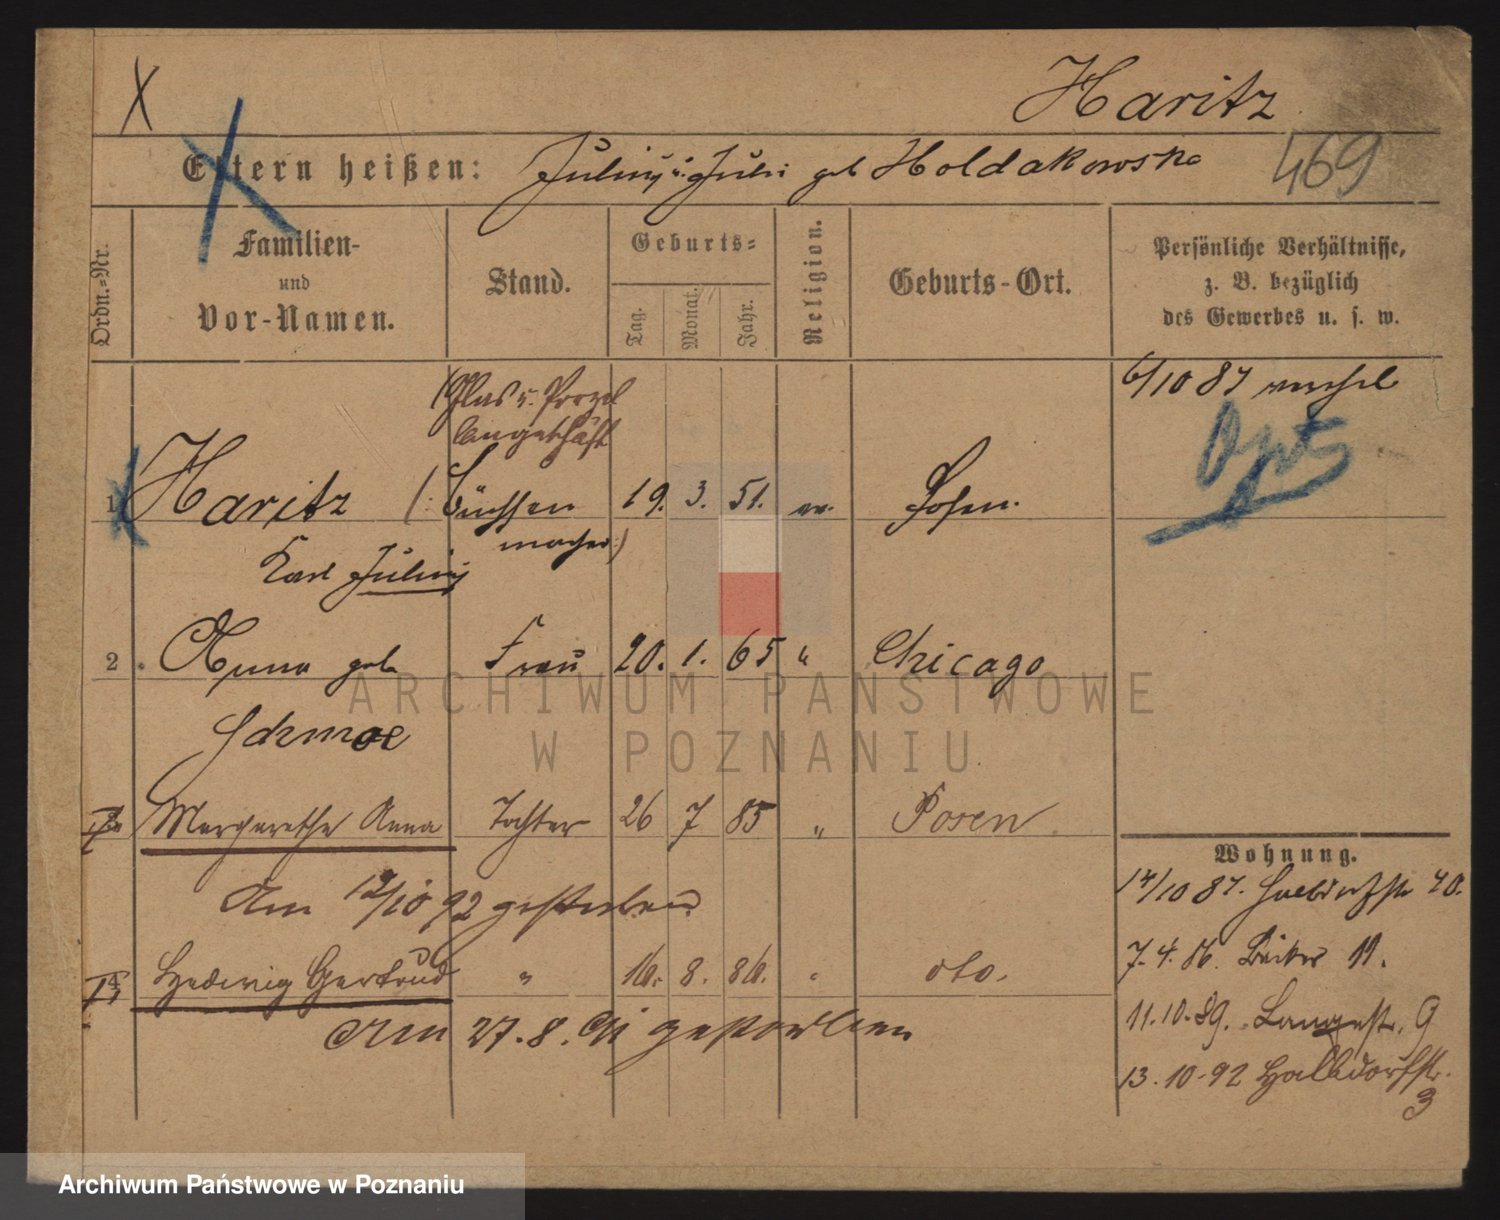 X
Haritz
469
Eltern heißen: Julius u. Juli geb Holdakowska
Ordn.=Nr.
Familien-
und
Vor-Namen.
Stand.
Geburts=
Tag.
Monat.
Jahr.
Religion.
Geburts-Ort.
Persönliche Verhältnisse,
z. B. bezüglich
des Gewerbes u. s. w.
6/10 87
(Glas u. Porzel
langeschäft
1 Haritz (Büchsen 19. 3. 51. ev. Posen.
macher)
Karl Julius
2 Anna geb Frau 20. 1. 65 " Chicago
ARCHIWUM PAŃSTWOWE
W POZNANIU
3 Margarethe Anna Tochter 26 7 85 " Posen
Am 12/10 92 gestorben
4 Hedwig Gertrud " 16. 8. 86. " dto.
Am 27. 8. 91 gestorben
Wohnung.
14/10 87. Halbdorfstr 40.
7. 4. 86. 11.
11. 10. 89. Langestr. 9
13. 10. 92 Halbdorfstr.
3
Archiwum Państwowe w Poznaniu